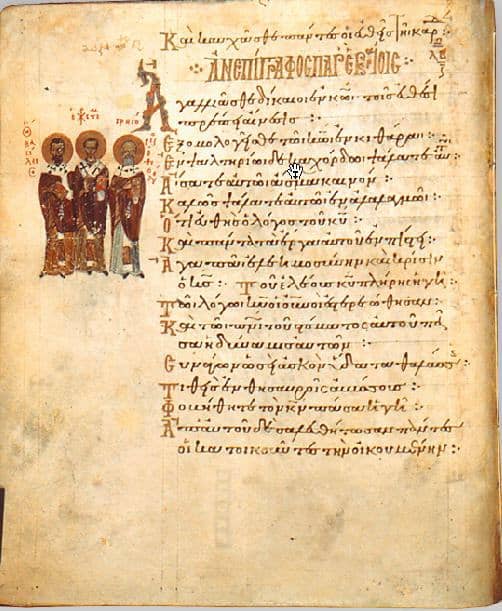 Καὶ καυχᾶσθε πάντες οἱ εὐθεῖς τῆ καρδ
ΑΝΕΠΙΓΡΑΦΟΣ ΠΑΡ ΕΒΡΑΙΟΙΣ
ΛΒ
Ἀγαλλιᾶσθε δίκαιοι ἐν κω τοῖς εὐθέσι
πρέπει αἴνεσις :
Ἐξομολογεῖσθε τῶ κω ἐν κιθάρα :
Ἐν ψαλτηρίω δεκαχόρδω ψάλατε αὐτῶ
Ἄσατε αὐτῶ ἆσμα καινόν :
Καλῶς ψάλατε αὐτῶ ἐν ἀλαλαγμῶ :
Ὅτι εὐθὴς ὁ λόγος τοῦ κυ :
Καὶ πάντα τὰ ἔργα αὐτοῦ ἐν πίστει :
Ἀγαπᾶ ἐλεημοσύνην καὶ κρίσιν
ὁ κς : Τοῦ ἐλέους κυ πλήρης ἡ γῆ :
Τῶ λόγω κυ οἱ οὐνοὶ ἐστερεώθησαν :
Καὶ τῶ πνι τοῦ στόματος αὐτοῦ πᾶ
σα ἡ δύναμις αὐτῶν :
Συνάγων ὡσεὶ ἀσκὸν ὕδατα θαλάσσης
Τιθεὶς ἐν θησαυροῖς ἀβύσσους :
Φοβηθήτω τὸν κν πᾶσα ἡ γῆ :
Ἀπ αὐτοῦ δὲ σαλευθήτωσαν πάντες
οἱ κατοικοῦντες τὴν οἰκουμένην :